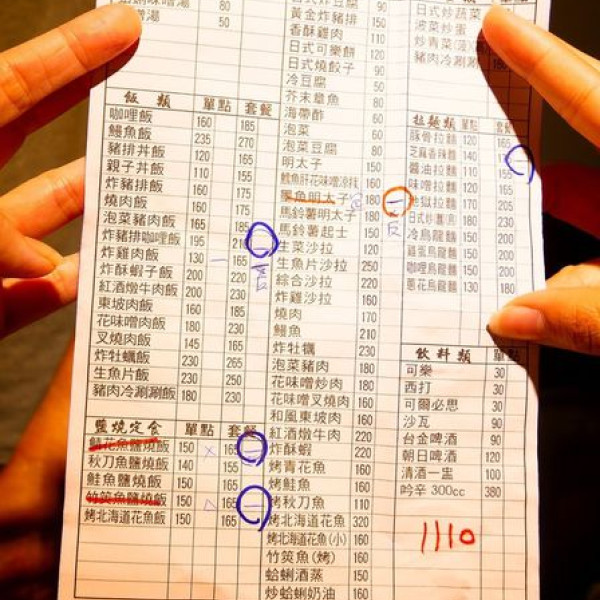 80
50
飯 類 單點 套餐
咖哩飯 160 185
鰻魚飯 235 270
豬排丼飯 120 165
親子丼飯 110 155
炸豬排飯 160 175
燒肉飯 160 175
泡菜豬肉飯 165 185
炸豬排咖哩飯 195
炸雞肉飯 130 165
炸酥蝦子飯 200 220
紅酒燉牛肉飯 200 230
東坡肉飯 160 185
花味噌肉飯 180 230
叉燒肉飯 145 165
炸牡蠣飯 230 265
生魚片飯 230 250
豬肉冷涮涮飯 180 230
鹽燒定食 單點 套餐
花魚鹽燒飯 150 165
秋刀魚鹽燒飯 140 155
鮭魚鹽燒飯 150 165
竹筴魚鹽燒飯 150 165
烤北海道花魚飯 150 165
日式炸豆腐 90
黃金炸豬排 150
香酥雞肉 110
日式可樂餅 120
日式燒餃子 90
冷豆腐 50
芥末章魚 80
海帶酢 60
泡菜 60
泡菜豆腐 80
明太子 150
魷魚肝花味噌涼拌 160
魚明太子 180
馬鈴薯明太子 180
馬鈴薯起士 150
生菜沙拉 120
生魚片沙拉 250
綜合沙拉 220
炸雞沙拉 160
燒肉 170
鰻魚 210
炸牡蠣 230
泡菜豬肉 180
花味噌炒肉 180
花味噌叉燒肉 160
和風東坡肉 160
紅酒燉牛肉 220
炸酥蝦 220
烤青花魚 160
烤鮭魚 160
烤秋刀魚 110
烤北海道花魚 320
烤北海道花魚(小) 160
竹筴魚(烤) 160
蛤蜊酒蒸 150
炒蛤蜊奶油 160
日式炒蔬菜
菠菜炒蛋
炒青菜
豬肉冷涮涮 180
拉麵類 單點 套餐
豚骨拉麵 120 165
芝麻香辣麵 140
醬油拉麵 110 155
味噌拉麵 120 165
地獄拉麵 170 205
日式炒麵 180 200
冷烏龍麵 150 200
雞蛋烏龍麵 150 200
咖哩烏龍麵 150 200
蔥花烏龍麵 130 180
飲料類 單點
可樂 30
西打 30
可爾必思 30
沙瓦 90
台金啤酒 90
朝日啤酒 120
清酒一盅 100
吟辛 300cc 380
1110